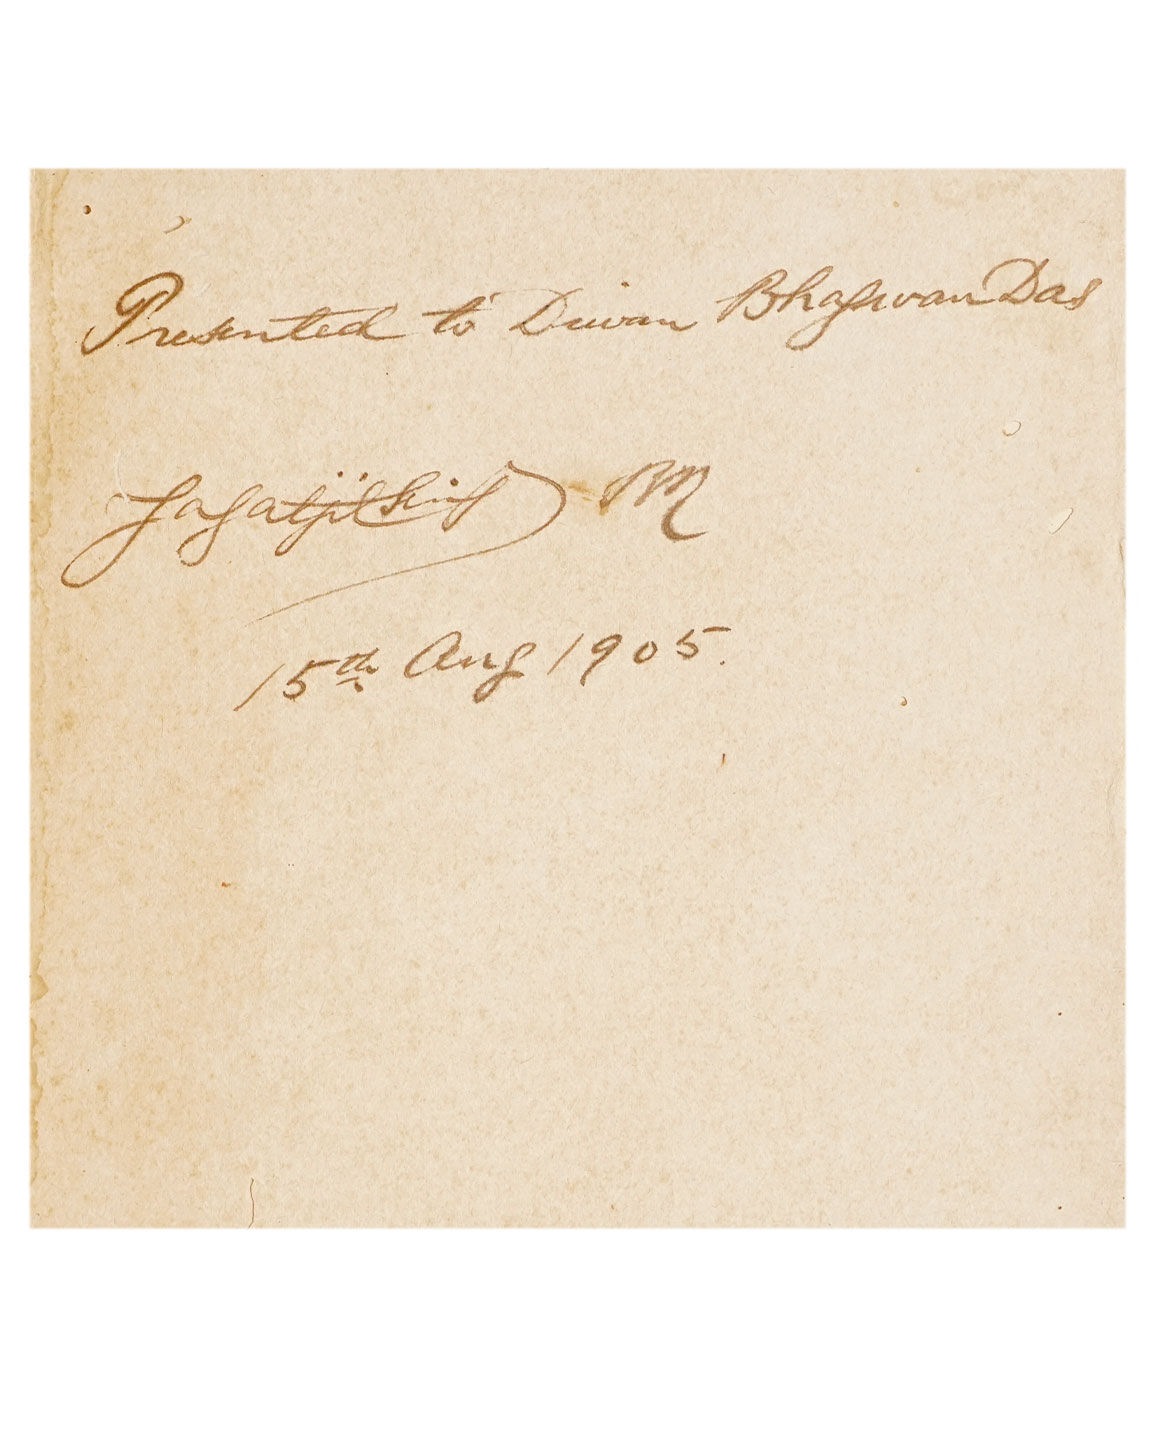 Presented to Diwan Bhagwan Das
Jagatjit Singh
15th Aug 1905.